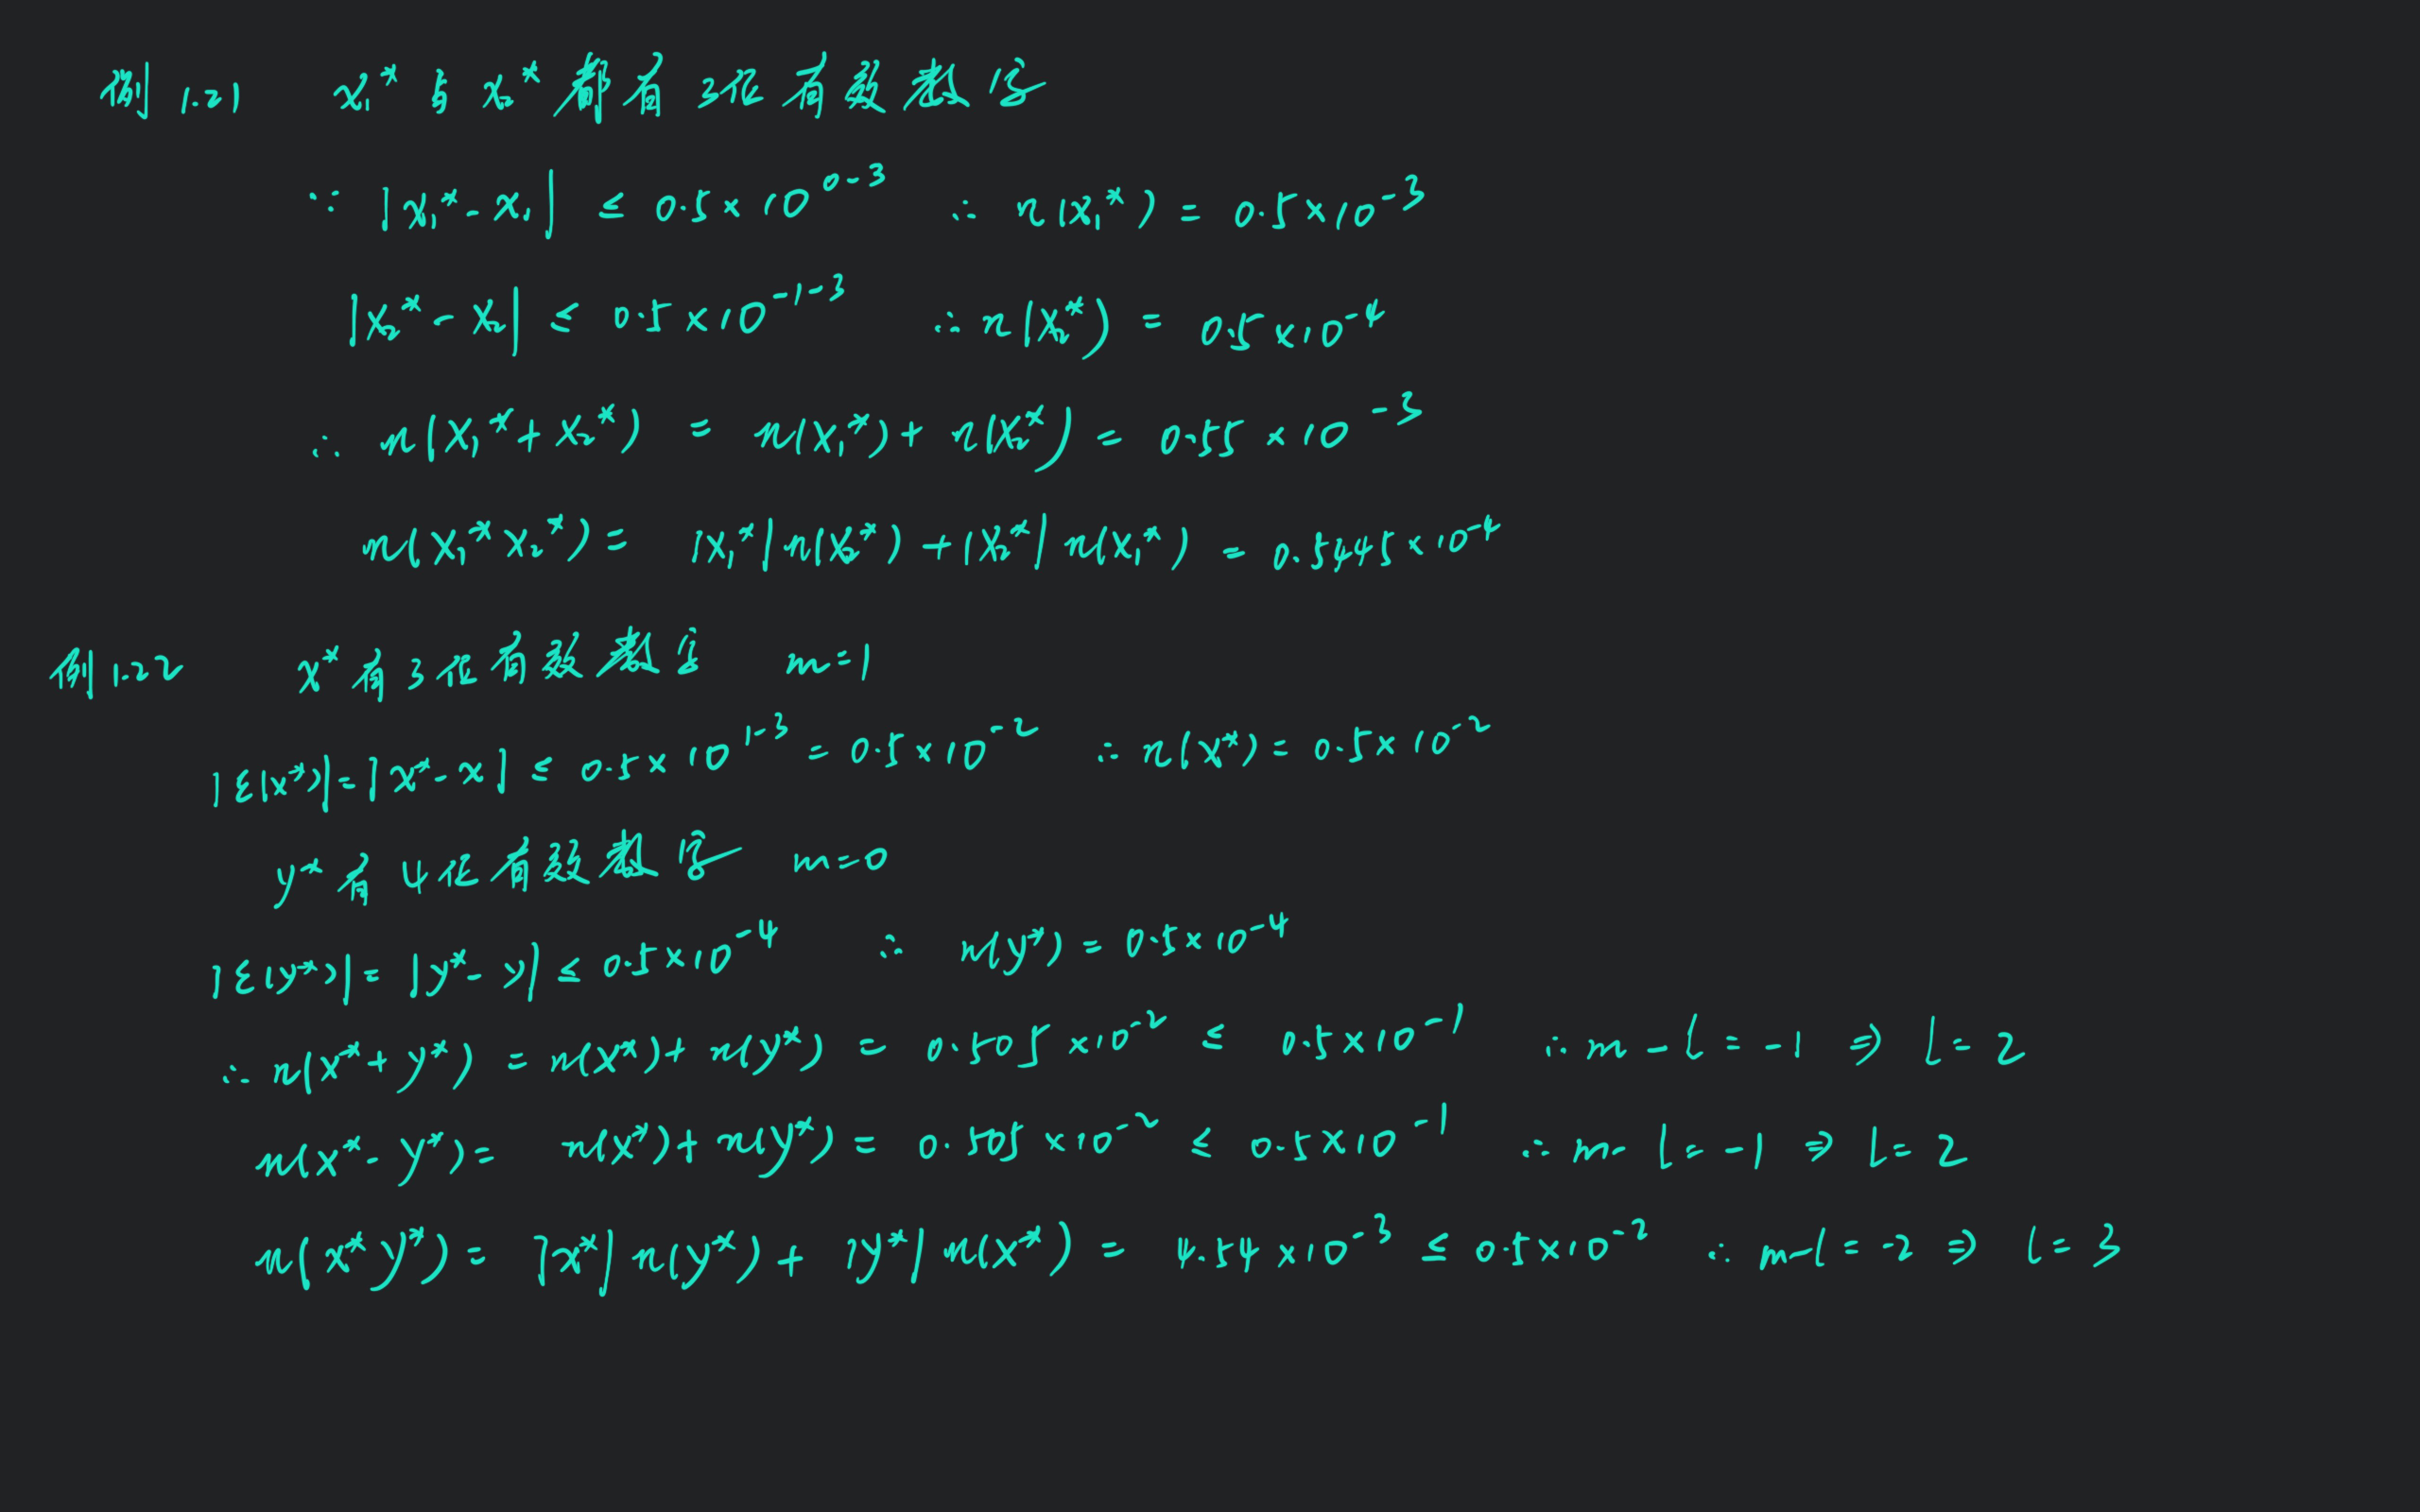 例1.21 x₁* 与 x₂* 都有3位有效数字
∵ |x₁*-x₁| ≤ 0.5×10⁰⁻³ ∴ η(x₁*) = 0.5×10⁻³
|x₂*-x₂| ≤ 0.5×10⁻¹⁻³ ∴ η(x₂*) = 0.5×10⁻⁴
∴ η(x₁*+x₂*) = η(x₁*)+η(x₂*) = 0.55×10⁻³
η(x₁*x₂*) = |x₁*|η(x₂*)+|x₂*|η(x₁*) = 0.5445×10⁻⁴
例1.22 x*有3位有效数字 m=1
|ε(x*)|=|x*-x| ≤ 0.5×10¹⁻³ = 0.5×10⁻² ∴ η(x*) = 0.5×10⁻²
y*有4位有效数字 m=0
|ε(y*)|=|y*-y| ≤ 0.5×10⁻⁴ ∴ η(y*) = 0.5×10⁻⁴
∴ η(x*+y*) = η(x*)+η(y*) = 0.505×10⁻² ≤ 0.5×10⁻¹ ∴ m-l=-1 ⇒ l=2
η(x*-y*) = η(x*)+η(y*) = 0.505×10⁻² ≤ 0.5×10⁻¹ ∴ m-l=-1 ⇒ l=2
η(x*y*) = |x*|η(y*)+|y*|η(x*) = 4.54×10⁻³ ≤ 0.5×10⁻² ∴ m-l=-2 ⇒ l=3